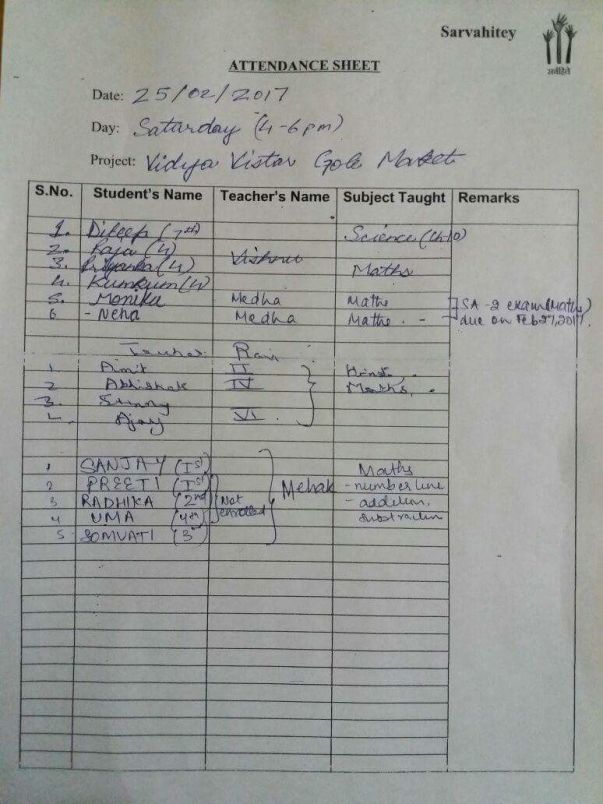 Sarvahitey
सर्वहिते
ATTENDANCE SHEET
Date: 25/02/2017
Day: Saturday (4-6pm)
Project: Vidya Vistar Gole Market
S.No. Student's Name Teacher's Name Subject Taught Remarks
1. Dileep (7th) Science (Ch 10)
2. Raja (4)
3. Priyanka (4) Vishnu Maths
4. Kumkum (4)
5. Monika Medha Maths SA-2 exam (Maths)
6 - Neha Medha Maths. - due on Feb 27, 2017.
Teacher: Ravi
1. Amit II Hindi
2 Abhishek IV Maths.
3. Sunny
4. Ajay VI.
1 SANJAY (Ist) Maths
2 PREETI (Ist) Mehak - number line
3 RADHIKA (2nd) Not - addition,
4 UMA (4th) enrolled substraction
5. SOMVATI (3